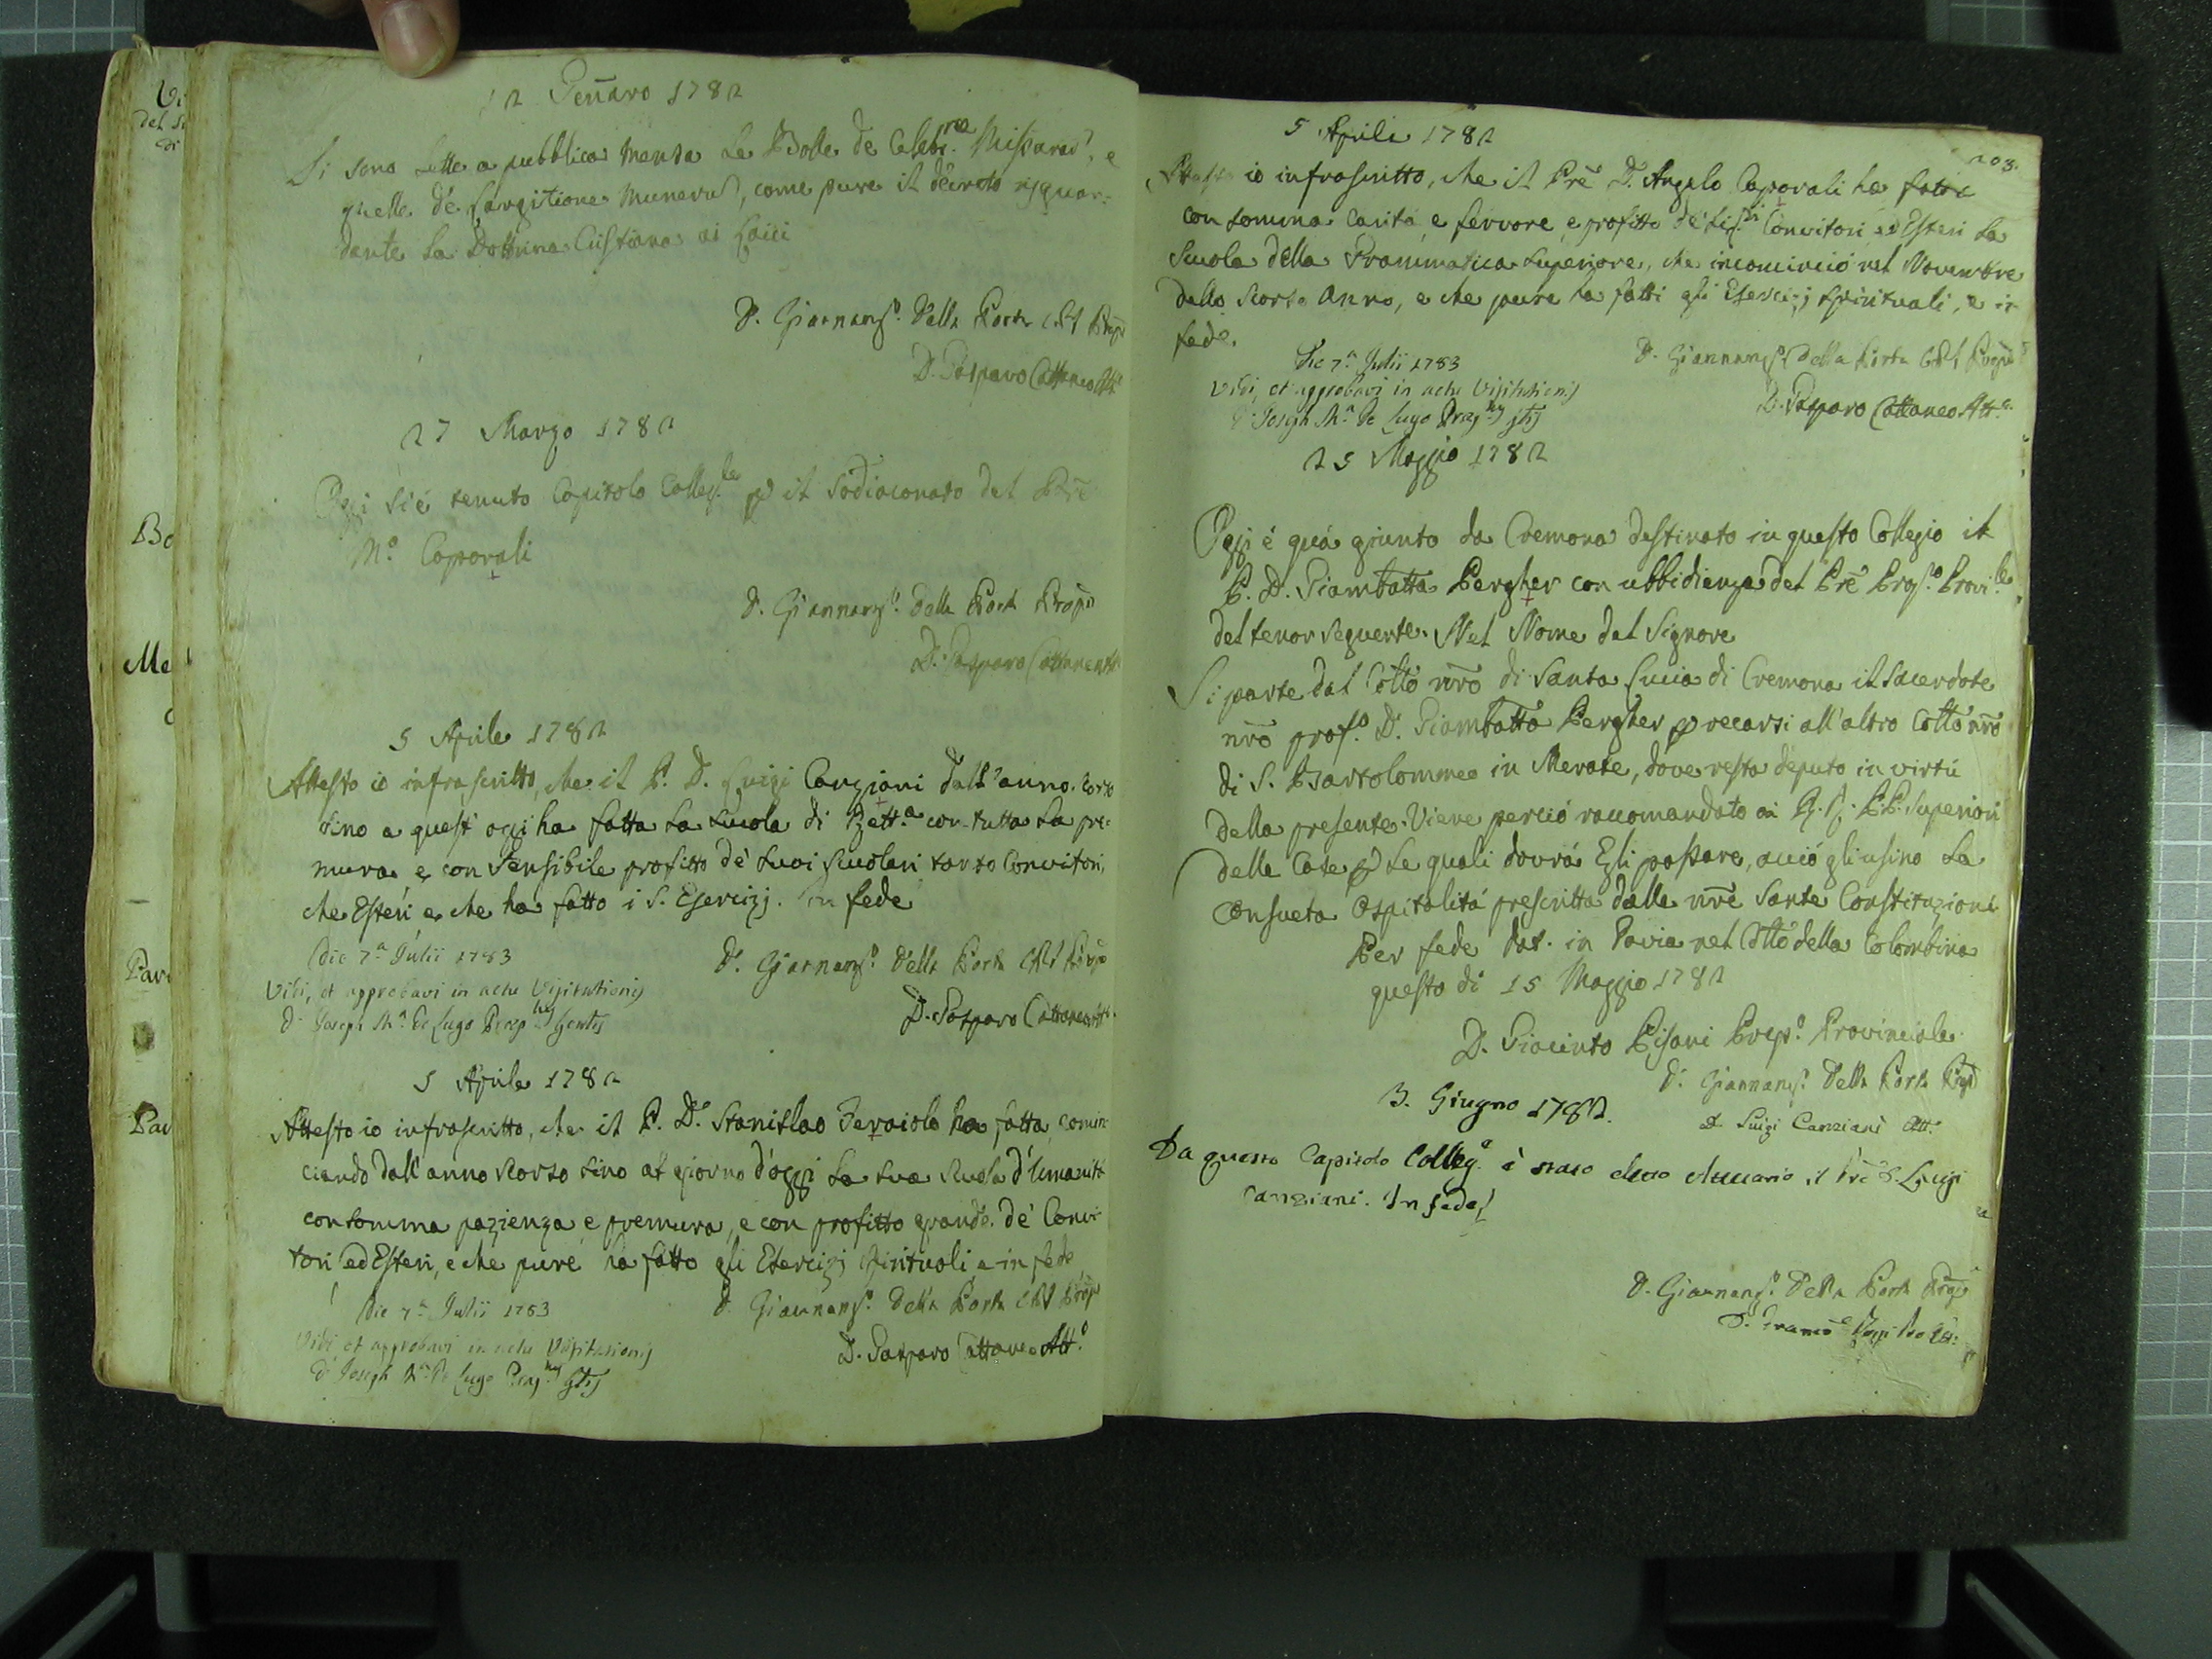 12 Gennaro 1782
Si sono lette a pubblica mensa le Bolle de Celebr.ne Missarum, e
quella de Largitione Munerum, come pure il decreto risguar-
dante la Dottrina Cristiana ai Laici
D. Giannanſ.o Della Porta CRS Prepo
D. Gasparo Cattaneo Att.o
27 Marzo 1782
Oggi si è tenuto Capitolo Colleg.le per il Sodiaconato del Prē
M.o Caporali
D. Giannanſ.o Della Porta Prepo
D. Gasparo Cattaneo Att.
5 Aprile 1782
Attesto io infrascritto, che il P. D. Luigi Canziani dall'anno scorso
sino a quest' oggi ha fatta la scuola di Rett.a con tutta la pre-
mura e con sensibile profitto de' suoi scuolari tanto Convitori,
che Esteri e che ha fatto i S. Esercizj. In fede
Die 7.a Julii 1783
Vidi, et approbavi in actu Visitationis
D. Joseph M.a De Lugo Prep.tus Gen.lis
D. Giannanſ.o Della Porta CRS Prepo
D. Gasparo Cattaneo Att.o
5 Aprile 1782
Attesto io infrascritto, che il P. D. Stanislao Feraiolo ha fatta, comin-
ciando dall'anno scorso sino al giorno d'oggi la sua scuola d'Umanità
con somma pazienza, e premura, e con profitto grande de' Convi-
tori ed Esteri, e che pure ha fatto gli Esercizj spirituali e in fede
Die 7.a Julii 1783
Vidi, et approbavi in actu Visitationis
D. Joseph M.a De Lugo Prep.tus
D. Giannanſ.o Della Porta CRS Prepo
D. Gasparo Cattaneo Att.o
203.
5 Aprile 1782
Attesto io infrascritto, che il Prē D. Angelo Caporali ha fatta
con somma carità, e fervore, e profitto de' Convitori ed Esteri la
Scuola della Grammatica superiore, che incominciò nel Novembre
dello scorso anno, e che pure ha fatti gli Esercizj spirituali, e in
fede.
Die 7.a Julii 1783
Vidi, et approbavi in actu Visitationis
D. Joseph M.a De Lugo Prep.tus
D. Giannanſ.o Della Porta CRS Prepo
D. Gasparo Cattaneo Att.o
25 Maggio 1782
Oggi è quà giunto da Cremona destinato in questo Collegio il
P. D. Giambatta Pergher con ubbidienza del Prē Prep.o Prov.le
del tenor seguente. Nel Nome del Signore
Si parte dal Collō nrō di Santa Lucia di Cremona il Sacerdote
nrō prof.o D. Giambatta Pergher per recarsi all'altro Collō nrō
di S. Bartolommeo in Merate, dove resta deputo in virtù
della presente. Viene perciò raccomandato ai PP. Superiori
delle Case per le quali dovrà Egli passare, acciò gli usino la
consueta Ospitalità prescritta dalle nrē Sante Constituzioni
Per fede dat. in Pavia nel Collō della Colombina
questo dì 15 Maggio 1782
D. Giacinto Pisani Prep.o Provinciale
D. Giannanſ.o Della Porta Prepo
D. Luigi Canziani Att.o
3. Giugno 1782.
Da questo Capitolo Colleg.e è stato eletto Attuario il Prē D. Luigi
Canziani. In fede
D. Giannanſ.o Della Porta Prepo